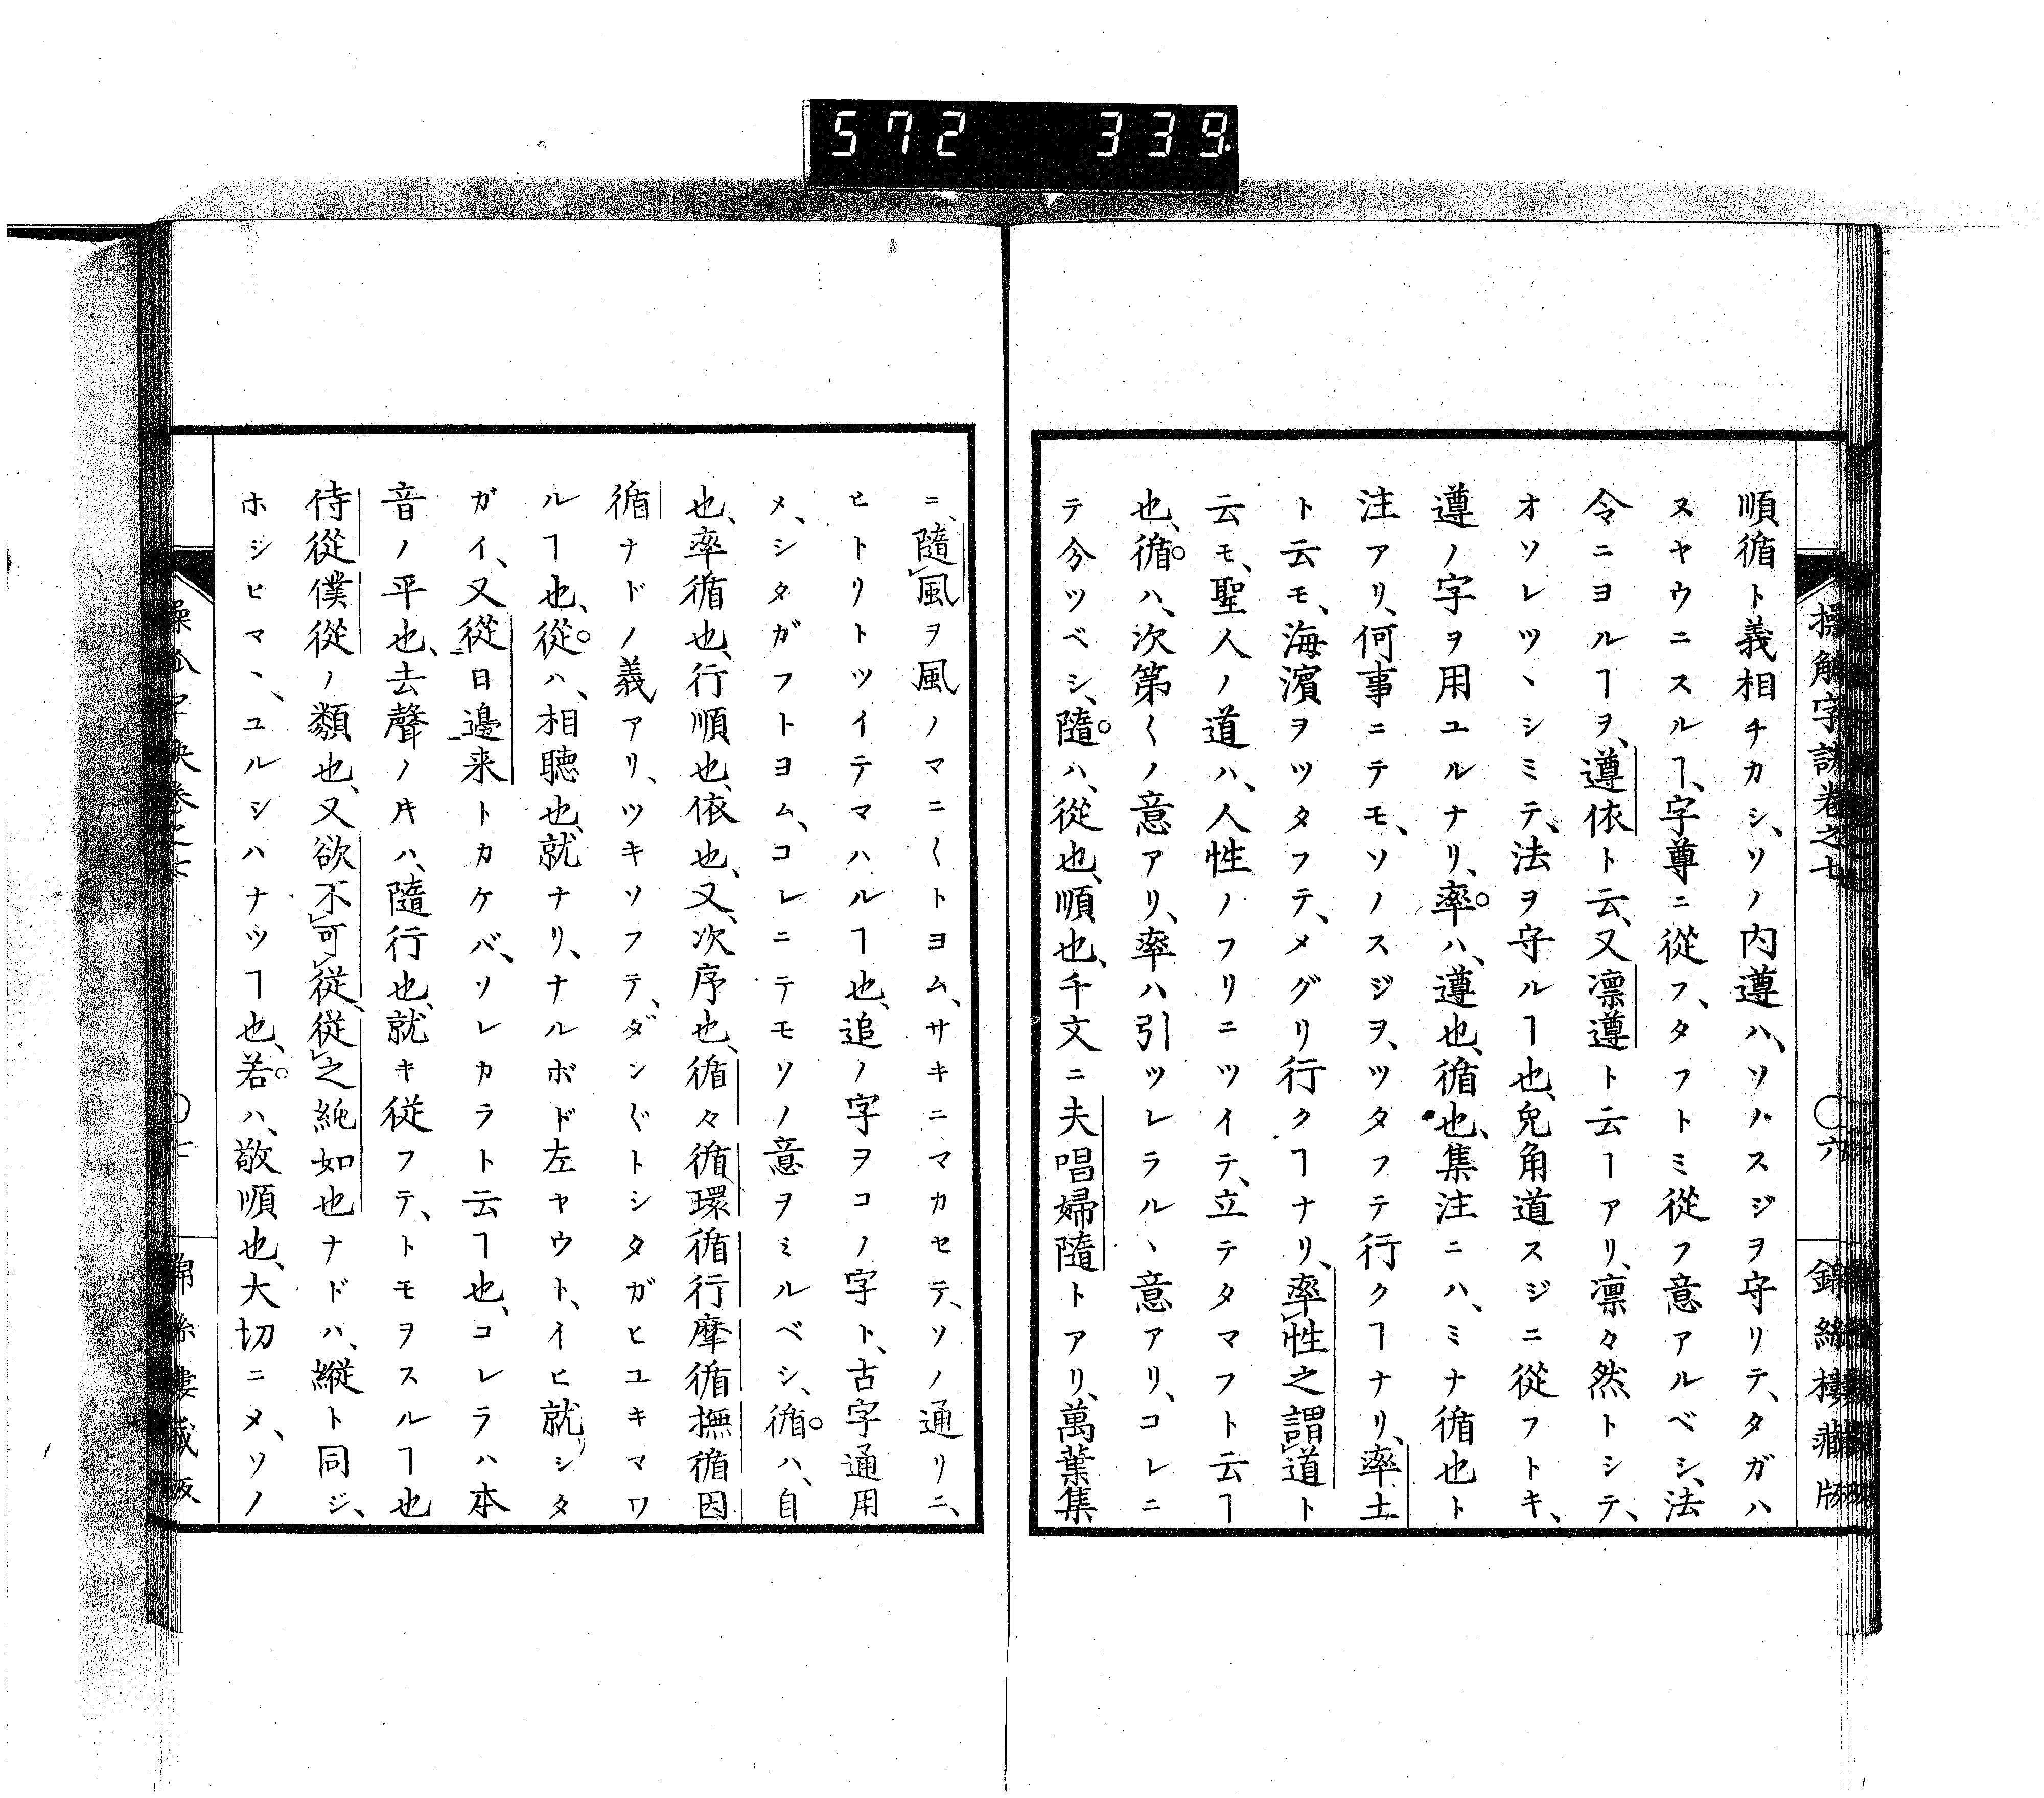 572 339
操觚字訣卷之七 〇六 錦絲樓藏版
順循ト義相チカシ、ソノ内遵ハ、ソノスジヲ守リテ、タガハ
ヌヤウニスルヿ、字尊ニ從フ、タフトミ從フ意アルベシ、法
令ニヨルヿヲ、遵依ト云、又凛遵ト云ヿアリ、凛々然トシテ、
オソレツヽシミテ、法ヲ守ルヿ也、兔角道スジニ從フトキ、
遵ノ字ヲ用ユルナリ、率。ハ、遵也、循也、集注ニハ、ミナ循也ト
注アリ、何事ニテモ、ソノスジヲ、ツタフテ行クヿナリ、率土
ト云モ、海濱ヲツタフテ、メグリ行クヿナリ、率性之謂道ト
云モ、聖人ノ道ハ、人性ノフリニツイテ、立テタマフト云ヿ
也、循。ハ、次第〱ノ意アリ、率ハ引ツレラルヽ意アリ、コレニ
テ分ツベシ、隨。ハ、從也、順也、千文ニ夫唱婦隨トアリ、萬葉集
ニ、隨風ヲ風ノマニ〱トヨム、サキニマカセテ、ソノ通リニ、
ヒトリトツイテマハルヿ也、追ノ字ヲコノ字ト、古字通用
メ、シタガフトヨム、コレニテモソノ意ヲミルベシ、循。ハ、自
也、率循也、行順也、依也、又、次序也、循々循環循行摩循撫循因
循ナドノ義アリ、ツキソフテ、ダン〲トシタガヒユキマワ
ルヿ也、從。ハ、相聽也、就ナリ、ナルボド左ヤウト、イヒ就リシタ
ガイ、又從日邊来トカケバ、ソレカラト云ヿ也、コレラハ本
音ノ平也、去聲ノ𪜈ハ、隨行也、就キ従フテ、トモヲスルヿ也
待從僕從ノ類也、又欲不可従、従之純如也ナドハ、縦ト同ジ、
ホシヒマヽ、ユルシハナツヿ也、若。ハ、敬順也、大切ニメ、ソノ
錦絲樓藏版